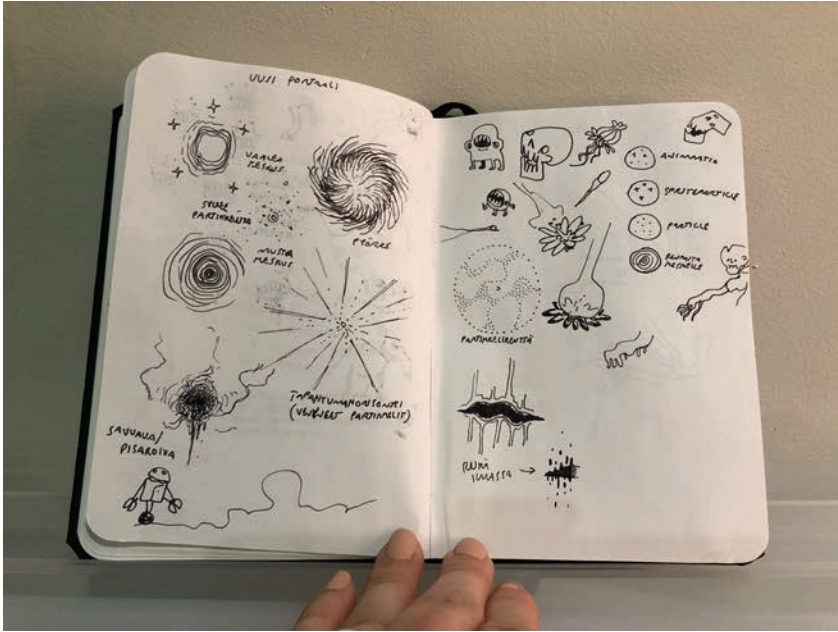 UUSI PORTAALI
VAALEA
KESKUS
PARTIKKELEITA
PYÖRRE
MUSTA
KESKUS
TAPAHTUMAHORISONTTI
(VENYVÄT PARTIKKELIT)
SAVUAVA/
PISAROIVA
ANIMAATIO
SPRITEPARTICLE
PARTICLE
PARTIKKELIKENTTÄ
REIKÄ
ILMASSA →